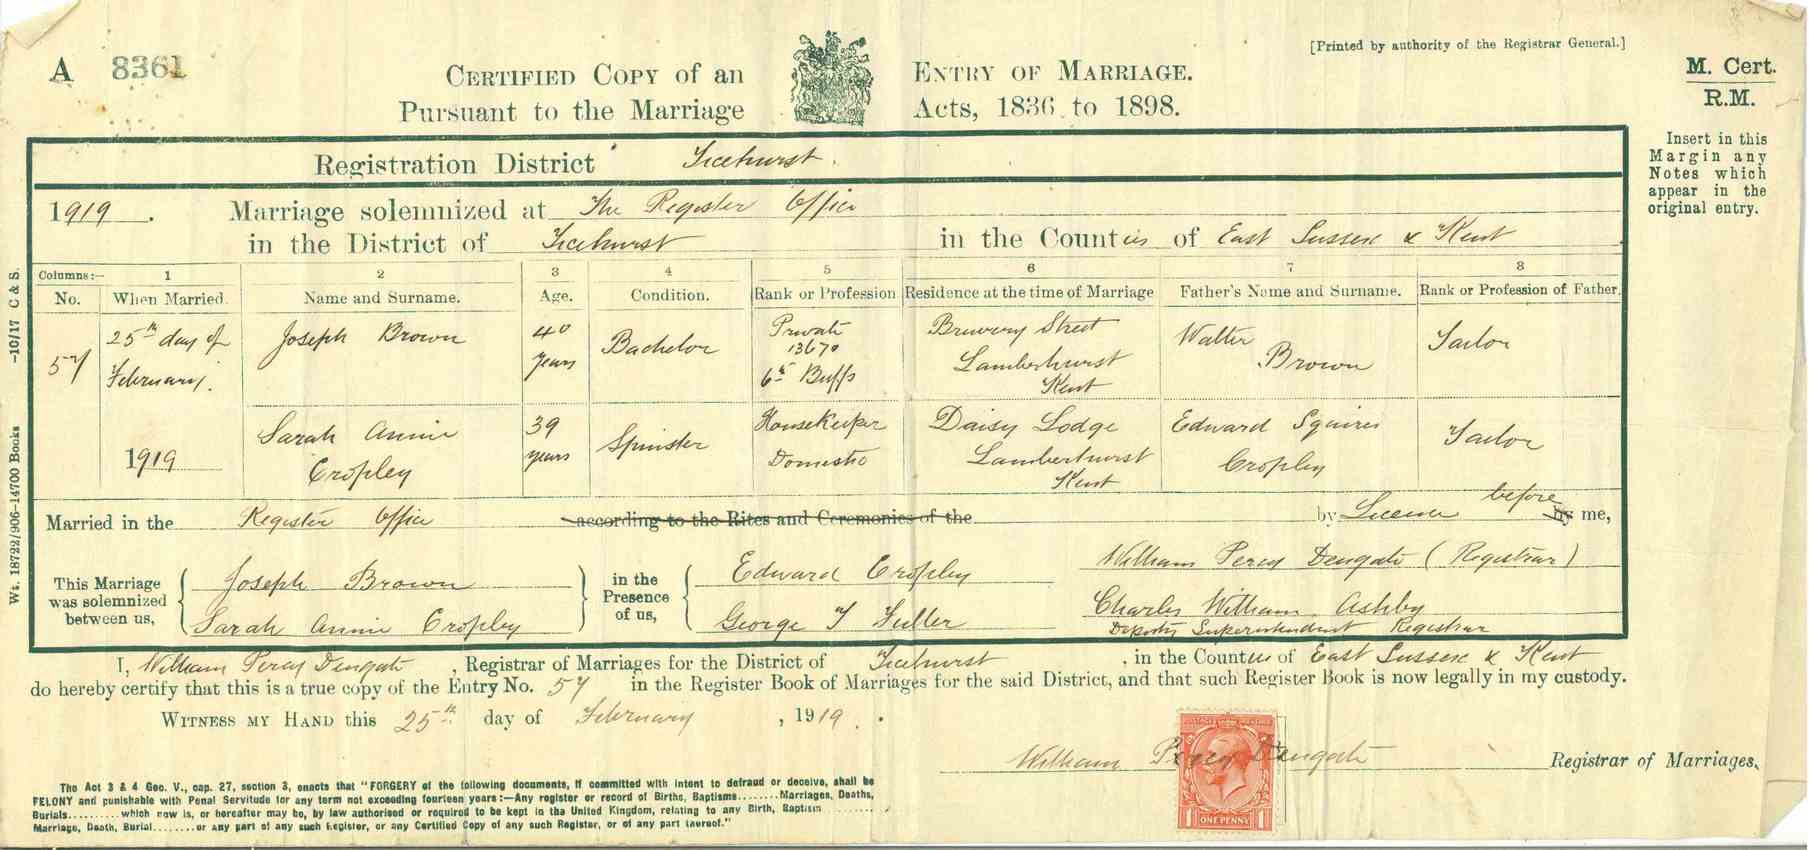 A 8361
[Printed by authority of the Registrar General.]
CERTIFIED COPY of an ENTRY OF MARRIAGE.
Pursuant to the Marriage Acts, 1836 to 1898.
M. Cert.
R.M.
Insert in this
Margin any
Notes which
appear in the
original entry.
Registration District Ticehurst.
1919. Marriage solemnized at The Register Office
in the District of Ticehurst in the Counties of East Sussex & Kent
Columns:— 1 2 3 4 5 6 7 8
No. When Married. Name and Surname. Age. Condition. Rank or Profession Residence at the time of Marriage Father's Name and Surname. Rank or Profession of Father.
57 25th day of February. 1919
Joseph Brown 40 years Bachelor Private 13670 6th Buffs Brewery Street Lamberhurst Kent Walter Brown Tailor
Sarah Annie Cropley 39 years Spinster Housekeeper Domestic Daisy Lodge Lamberhurst Kent Edward Squires Cropley Tailor
Married in the Register Office according to the Rites and Ceremonies of the by Licence before by me,
This Marriage was solemnized between us, Joseph Brown Sarah Annie Cropley
in the Presence of us, Edward Cropley George T Fuller
William Percy Dengate (Registrar)
Charles William Ashby
Deputy Superintendent Registrar
I, William Percy Dengate, Registrar of Marriages for the District of Ticehurst, in the Counties of East Sussex & Kent
do hereby certify that this is a true copy of the Entry No. 57 in the Register Book of Marriages for the said District, and that such Register Book is now legally in my custody.
WITNESS MY HAND this 25th day of February, 1919.
William Percy Dengate Registrar of Marriages.
POSTAGE REVENUE
1 ONE PENNY 1
The Act 3 & 4 Geo. V., cap. 27, section 3, enacts that "FORGERY of the following documents, if committed with intent to defraud or deceive, shall be
FELONY and punishable with Penal Servitude for any term not exceeding fourteen years:—Any register or record of Births, Baptisms........Marriages, Deaths,
Burials.........which now is, or hereafter may be, by law authorised or required to be kept in the United Kingdom, relating to any Birth, Baptism..........
Marriage, Death, Burial........or any part of any such Register, or any Certified Copy of any such Register, or of any part thereof."
Wt. 18722/906–14700 Books –10/17 C & S.